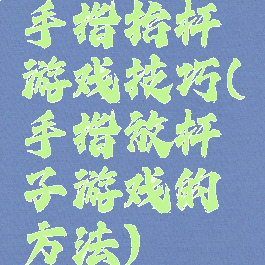 手指抬杆
游戏技巧(
手指放杆
子游戏的
方法)